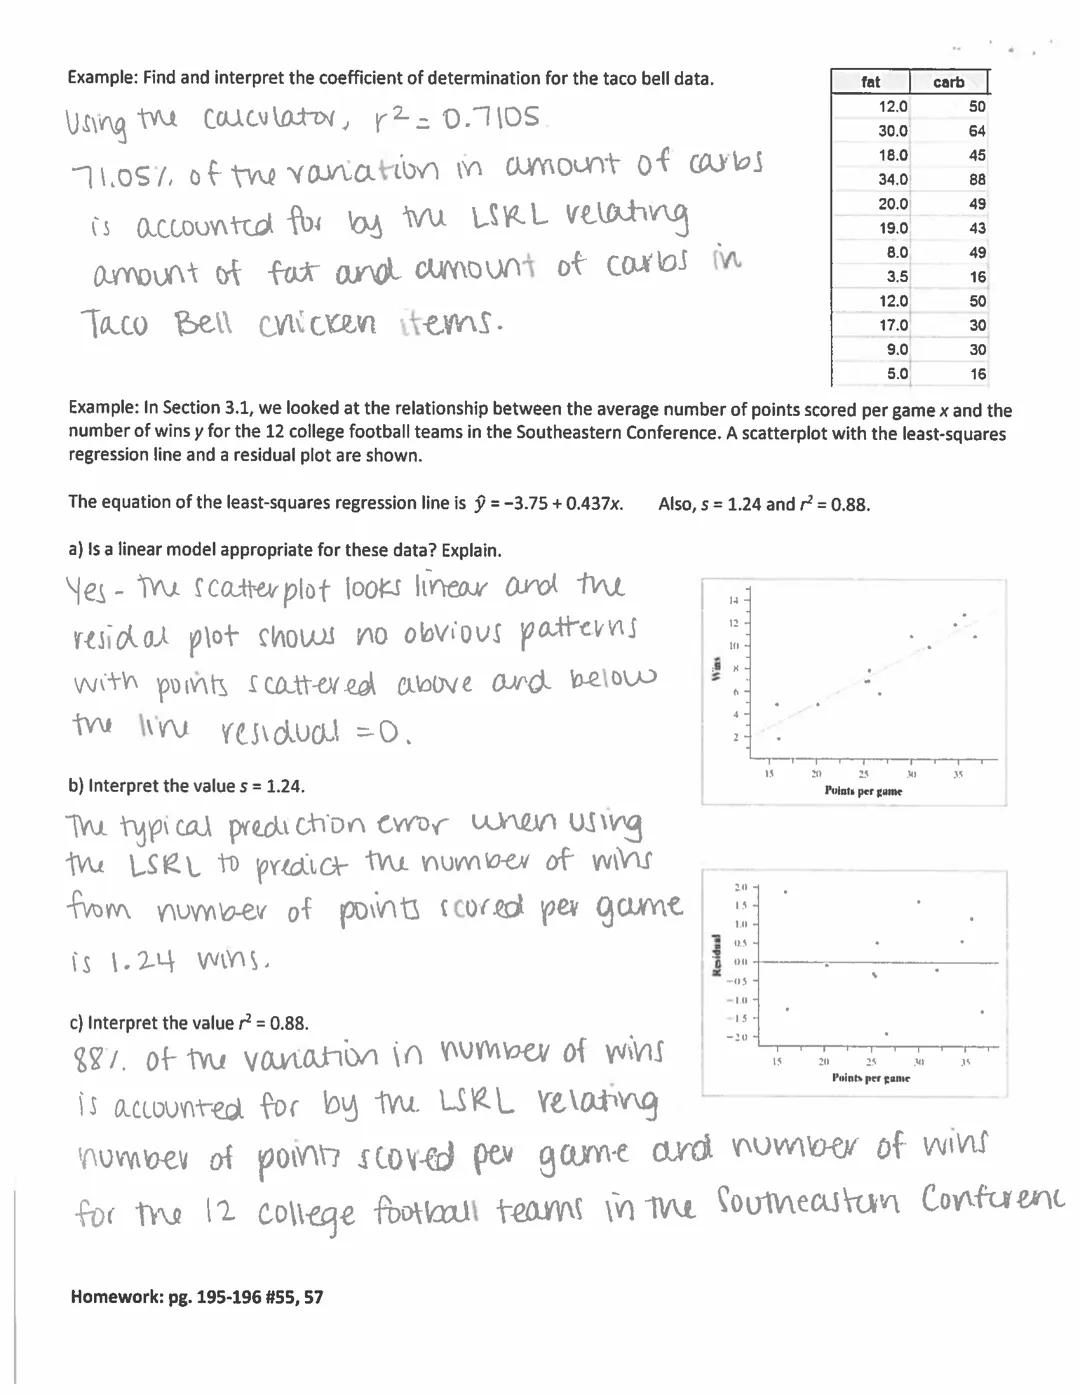 Example: Find and interpret the coefficient of determination for the taco bell data.
Using the calculator, r² = 0.7105
71.05% of the variation in amount of carbs
is accounted for by the LSRL relating
amount of fat and amount of carbs in
Taco Bell chicken items.
fat carb
12.0 50
30.0 64
18.0 45
34.0 88
20.0 49
19.0 43
8.0 49
3.5 16
12.0 50
17.0 30
9.0 30
5.0 16
Example: In Section 3.1, we looked at the relationship between the average number of points scored per game x and the
number of wins y for the 12 college football teams in the Southeastern Conference. A scatterplot with the least-squares
regression line and a residual plot are shown.
The equation of the least-squares regression line is ŷ = −3.75 + 0.437x. Also, s = 1.24 and r² = 0.88.
a) Is a linear model appropriate for these data? Explain.
Yes - the scatterplot looks linear and the
residal plot shows no obvious patterns
with points scattered above and below
the line residual = 0.
14
12
10
8
6
4
2
Wins
15 20 25 30 35
Points per game
b) Interpret the value s = 1.24.
The typical prediction error when using
the LSRL to predict the number of wins
from number of points scored per game
is 1.24 wins.
2.0
1.5
1.0
0.5
0.0
−0.5
−1.0
−1.5
−2.0
Residual
15 20 25 30 35
Points per game
c) Interpret the value r² = 0.88.
88%. of the variation in number of wins
is accounted for by the LSRL relating
number of points scored per game and number of wins
for the 12 college football teams in the Southeastern Conferenc
Homework: pg. 195-196 #55, 57